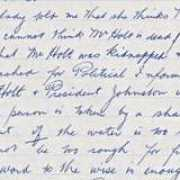 lady told me that she thinks T
I cannot think Mr Holt is dead f
that Mr Holt was kidnapped &
asked for Political Inform
Holt & President Johnston w
person is taken by a sha
of the water is too
not be too rough for f
word to the wise is enoug